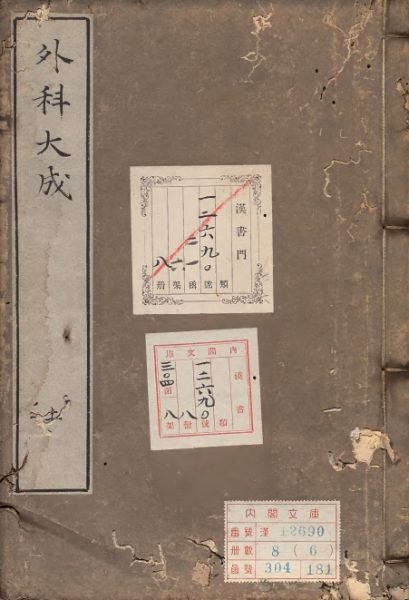 外科大成
漢書門
一二六九〇
八
類
號
函
架
冊
內閣文庫
漢書
一二六九〇
三〇四
八
八
類
號
函
架
內閣文庫
番號 漢 12690
冊數 8 (6)
函號 304 181